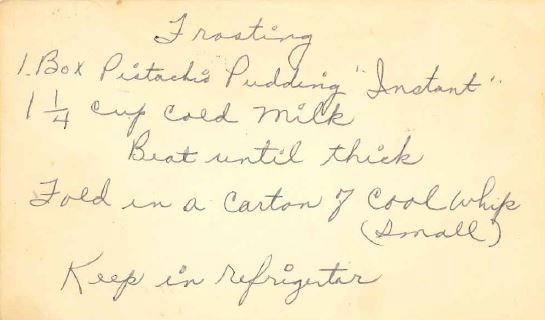 Frosting
1. Box Pistachio Pudding "Instant"
1 1/4 cup cold milk
Beat until thick
Fold in a carton of Cool Whip
(small)
Keep in refrigertar